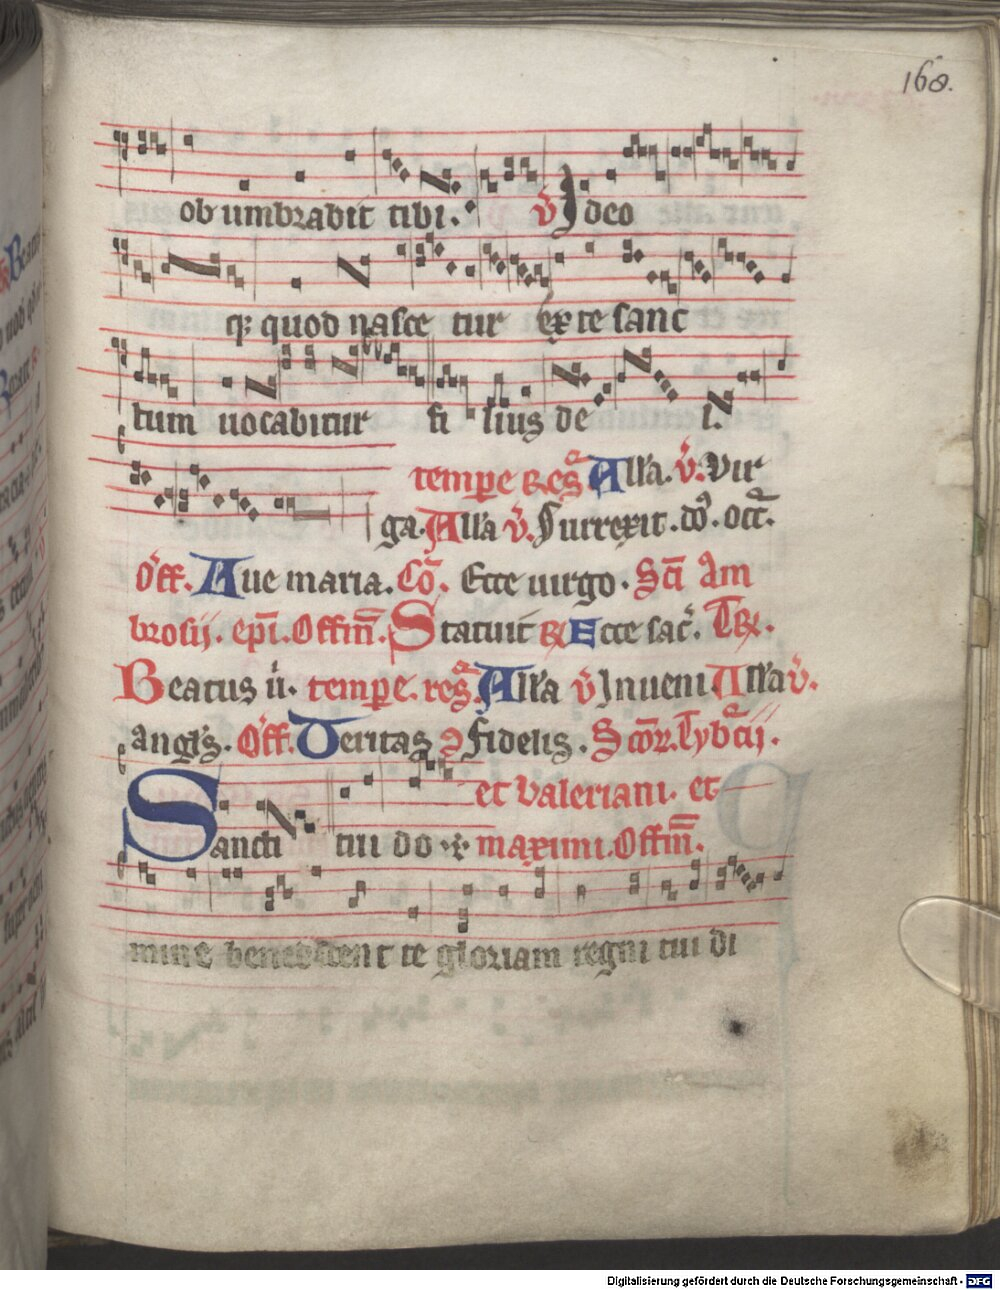 168.
obumbrabit tibi. v̄ Ideo
qꝫ quod nasce tur ex te sanc
tum uocabitur fi lius de i.
tempe Alła. v̄. Vir
ga. Alła v̄. Surrexit. occ̄.
Off. Aue maria. Cō. Ecce uirgo. Sc̄i Am
brosij. ep̄i. Offm̄. Statuit ℞ Ecce sac̄.
Beatus tempe. Alła v̄ Inueni. Alła v̄.
Off. Veritas fidelis.
et valeriani. et
Sancti tui do maximi. Offm̄.
mine benedicent te gloriam regni tui di
Digitalisierung gefördert durch die Deutsche Forschungsgemeinschaft - DFG